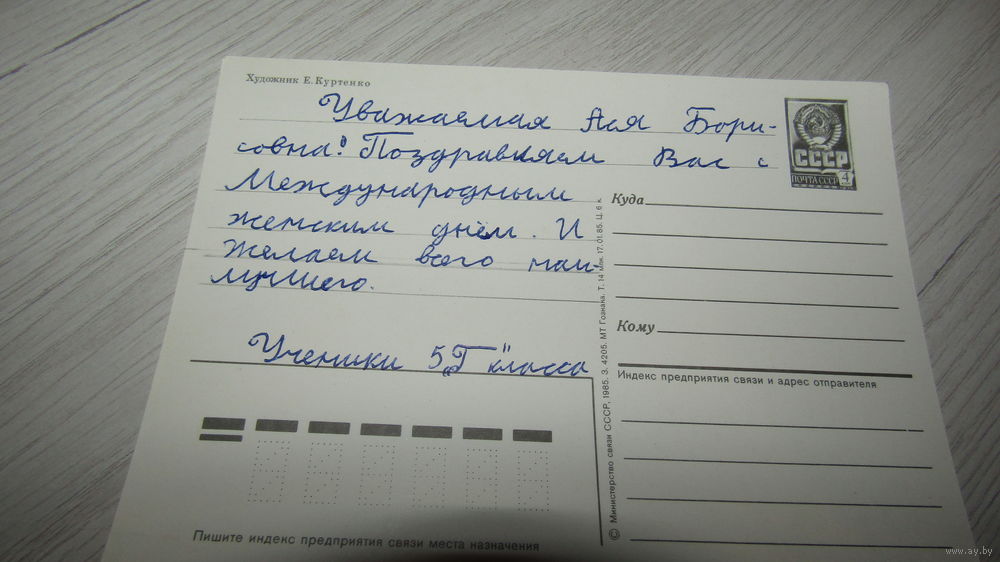 Художник Е. Куртенко
Уважаемая Ася Бори-
совна! Поздравляем Вас с
Международным
женским днём. И
желаем всего наи
лучшего.
Ученики 5 „Г" класса
СССР
ПОЧТА СССР 4
Куда
Кому
Индекс предприятия связи и адрес отправителя
© Министерство связи СССР, 1985. З. 4205. МТ Гознака. Т. 14 млн. 17.01.85. Ц. 6 к.
Пишите индекс предприятия связи места назначения
www.ay.by